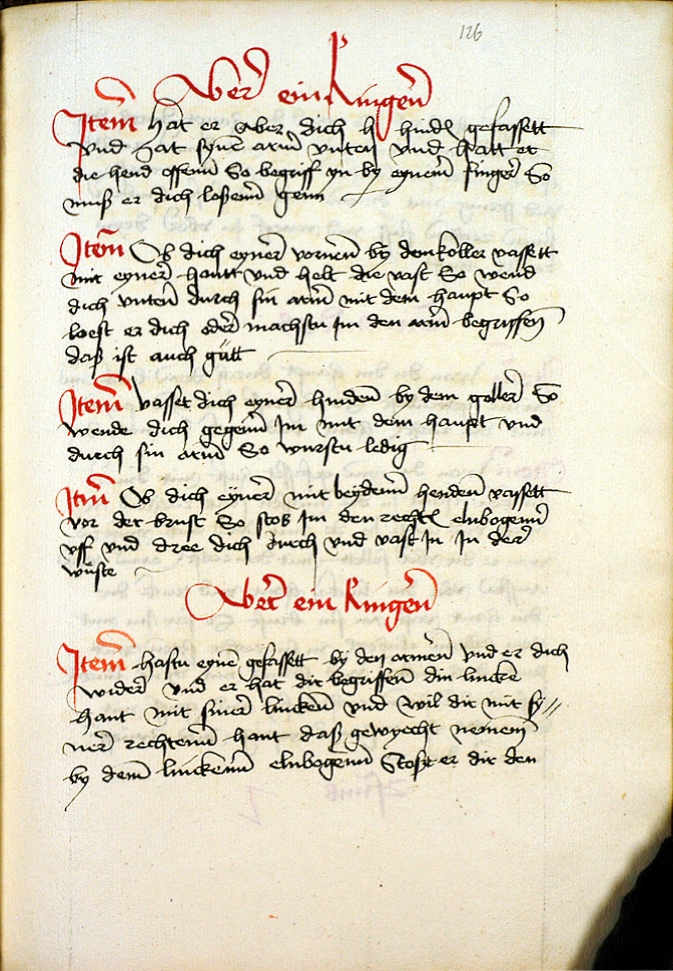 126
Aber ein Ringen
Item hat er aber dich hindē gefassett
vnd hat syne arm vnten vnd hatt er
die hend offenn So begriff yn by eynem finger So
muß er dich loßenn genn
Item Ob dich eyner vornen by dem koller vassett
mit eyner hantt vnd helt die vast So wend
dich vnten durch sin arm mit dem haupt So
loest er dich oder machstu im den arm begriffen
daß ist auch gutt
Item vasset dich eyner hinden by dem goller So
wende dich gegenn Im mit dem haupt vnd
durch sin arm So wurstu ledig
Itm Ob dich eyner mit beydenn henden vassett
vor der brust So stoß Im den rechtē elnbogenn
vff vnd dree dich durch vnd vast In In der
wuste
Aber ein Ringen
Item hastu eyne gefassett by den armen vnd er dich
wider vnd er hat dir begriffen din lincke
hant mit siner lincken vnd wil dir mit sy//
ner rechtenn hant daß gewycht nemenn
by dem linckenn elnbogenn Stoßt er dir den